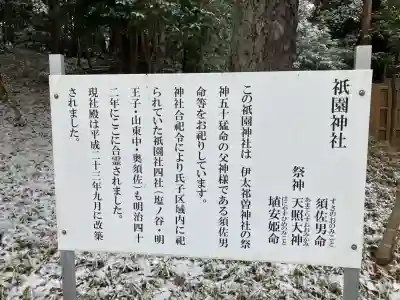 祇園神社
祭神
須佐男命
すさのおのみこと
天照大神
あまてらすおおみかみ
埴安姫命
はにやすひめのみこと
この祇園神社は 伊太祁曽神社の祭
神五十猛命の父神様である須佐男
命等をお祀りしています。
神社合祀令により氏子区域内に祀
られていた祇園社四社(塩ノ谷・明
王子・山東中・奥須佐)も明治四十
二年にここに合霊されました。
現社殿は平成二十三年九月に改築
されました。